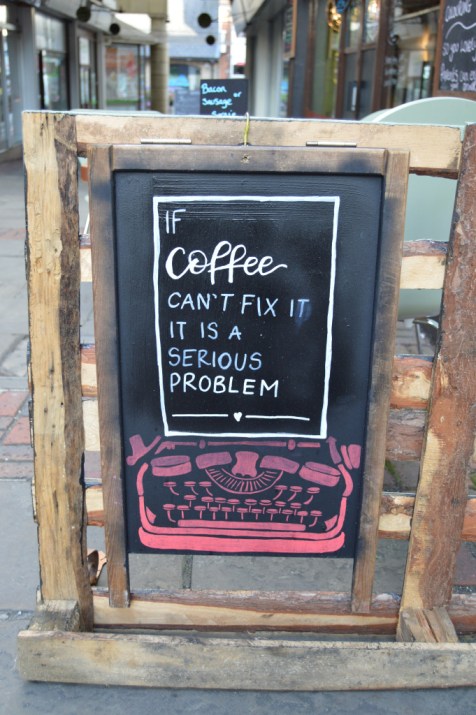 IF
Coffee
CAN'T FIX IT
IT IS A
SERIOUS
PROBLEM
Bacon
or
Sausage